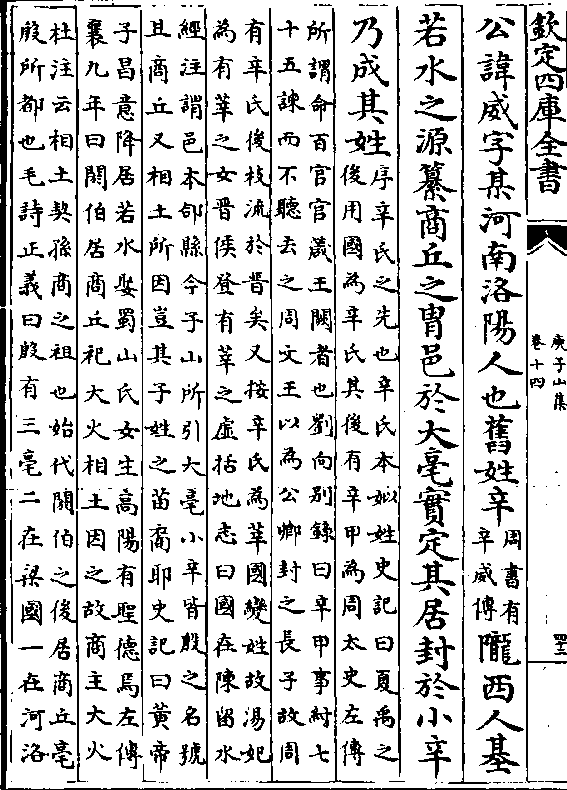 欽定四庫全書
庾子山集
卷十四
公諱威字某河南洛陽人也舊姓辛
周書有
辛威傳
隴西人基
若水之源纂商丘之胄邑於大亳實定其居封於小辛
乃成其姓
序辛氏之先也辛氏本姒姓史記曰夏禹之
後用國為辛氏其後有辛甲為周太史左傳
所謂命百官官箴王闕者也劉向別錄曰辛甲事紂七
十五諫而不聽去之周文王以為公卿封之長子故周
有辛氏後枝流於晉矣又按辛氏為莘國變姓故湯妃
為有莘之女晉侯登有莘之虛括地志曰國在陳留水
經注謂邑本郃縣今子山所引大亳小辛皆殷之名號
且商丘又相土所因豈其子姓之苗裔耶史記曰黃帝
子昌意降居若水娶蜀山氏女生高陽有聖德焉左傳
襄九年曰閼伯居商丘祀大火相土因之故商主大火
杜注云相土契孫商之祖也始代閼伯之後居商丘亳
殷所都也毛詩正義曰殷有三亳二在梁國一在河洛